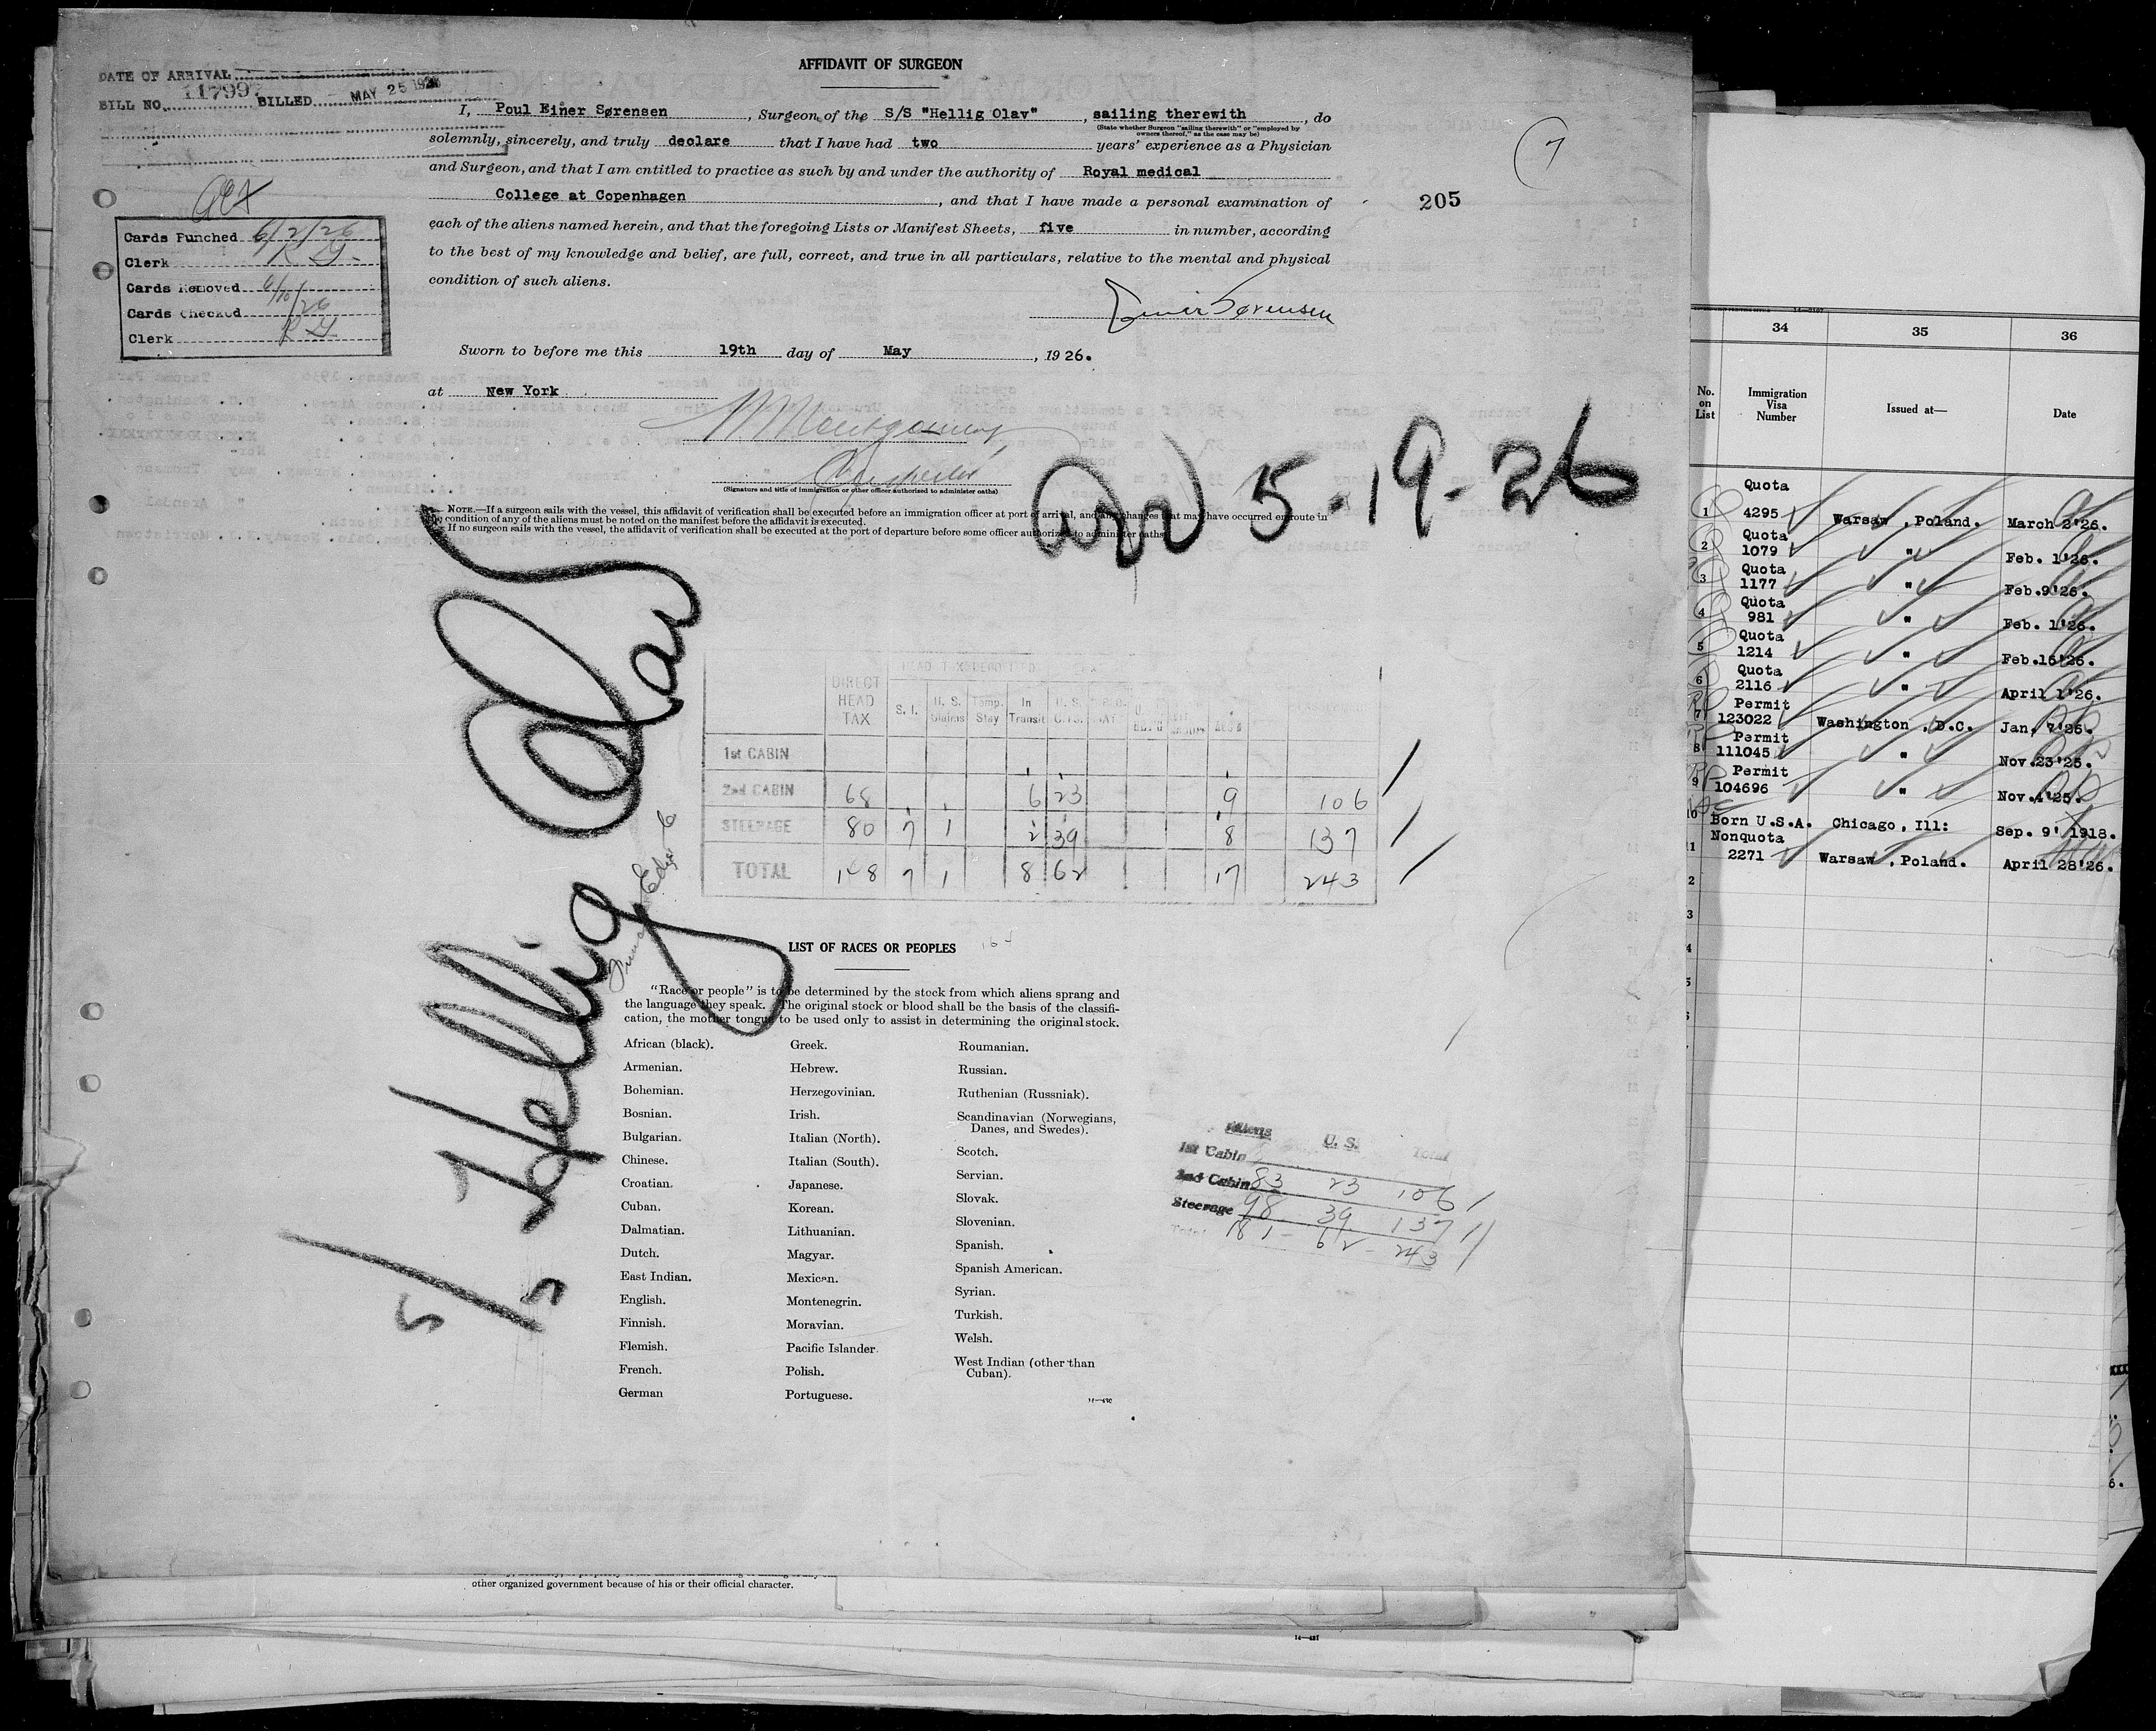 AFFIDAVIT OF SURGEON
DATE OF ARRIVAL
BILL NO. 117997 BILLED MAY 25 1926
I, Poul Einer Sørensen, Surgeon of the S/S "Hellig Olav", sailing therewith, do
(State whether Surgeon "sailing therewith" or "employed by
owners thereof," as the case may be)
solemnly, sincerely, and truly declare that I have had two years' experience as a Physician
and Surgeon, and that I am entitled to practice as such by and under the authority of Royal medical
College at Copenhagen, and that I have made a personal examination of
each of the aliens named herein, and that the foregoing Lists or Manifest Sheets, five in number, according
to the best of my knowledge and belief, are full, correct, and true in all particulars, relative to the mental and physical
condition of such aliens.
Einer Sørensen
7
205
Cards Punched 6/2/26
Clerk
Cards Removed 6/10/26
Cards Checked
Clerk
Sworn to before me this 19th day of May, 1926.
at New York
Montgomery
Inspector
(Signature and title of immigration or other officer authorized to administer oaths)
NOTE.—If a surgeon sails with the vessel, this affidavit of verification shall be executed before an immigration officer at port of arrival, and any changes that may have occurred en route in
the condition of any of the aliens must be noted on the manifest before the affidavit is executed.
If no surgeon sails with the vessel, the affidavit of verification shall be executed at the port of departure before some officer authorized to administer oaths.
arr 5-19-26
S/S Hellig Olav
DIRECT HEAD TAX S. I. U. S. Claims Temp. Stay In Transit U. S. CITS.
1st CABIN
2nd CABIN 68 6 23 9 106
STEERAGE 80 7 1 2 39 8 137
TOTAL 148 7 1 8 62 17 243
LIST OF RACES OR PEOPLES
"Race or people" is to be determined by the stock from which aliens sprang and
the language they speak. The original stock or blood shall be the basis of the classifi-
cation, the mother tongue to be used only to assist in determining the original stock.
African (black).
Armenian.
Bohemian.
Bosnian.
Bulgarian.
Chinese.
Croatian.
Cuban.
Dalmatian.
Dutch.
East Indian.
English.
Finnish.
Flemish.
French.
German
Greek.
Hebrew.
Herzegovinian.
Irish.
Italian (North).
Italian (South).
Japanese.
Korean.
Lithuanian.
Magyar.
Mexican.
Montenegrin.
Moravian.
Pacific Islander.
Polish.
Portuguese.
Roumanian.
Russian.
Ruthenian (Russniak).
Scandinavian (Norwegians,
Danes, and Swedes).
Scotch.
Servian.
Slovak.
Slovenian.
Spanish.
Spanish American.
Syrian.
Turkish.
Welsh.
West Indian (other than
Cuban).
Aliens U. S. Total
1st Cabin
2nd Cabin 83 23 106
Steerage 98 39 137
Total 181 - 62 - 243
other organized government because of his or their official character.
34 35 36
No. on List Immigration Visa Number Issued at— Date
1 Quota 4295 Warsaw, Poland. March 2'26.
2 Quota 1079 " Feb. 1'26.
3 Quota 1177 " Feb.9'26.
4 Quota 981 " Feb. 1'26.
5 Quota 1214 " Feb.15'26.
6 Quota 2116 " April 1'26.
7 Permit 123022 Washington, D.C. Jan, 7'26.
8 Permit 111045 " Nov.23'25.
9 Permit 104696 " Nov.4'25.
10 Born U.S.A. Chicago, Ill: Sep. 9' 1918.
1 Nonquota 2271 Warsaw, Poland. April 28'26.
2
3
4
5